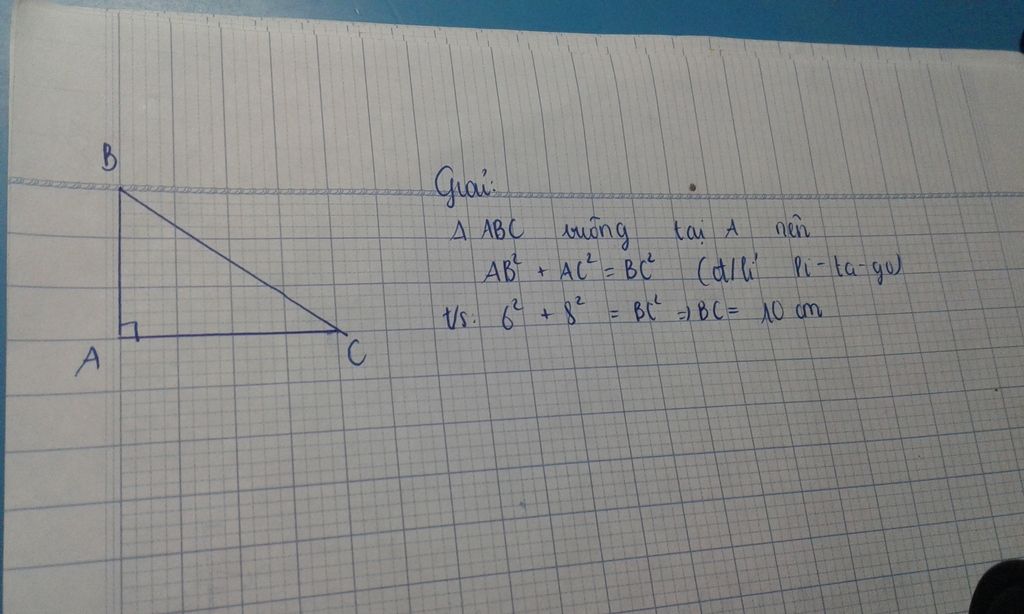 B
A
C
Giải:
Δ ABC vuông tại A nên
AB² + AC² = BC² (đ/lí Pi-ta-go)
t/s: 6² + 8² = BC² => BC = 10 cm